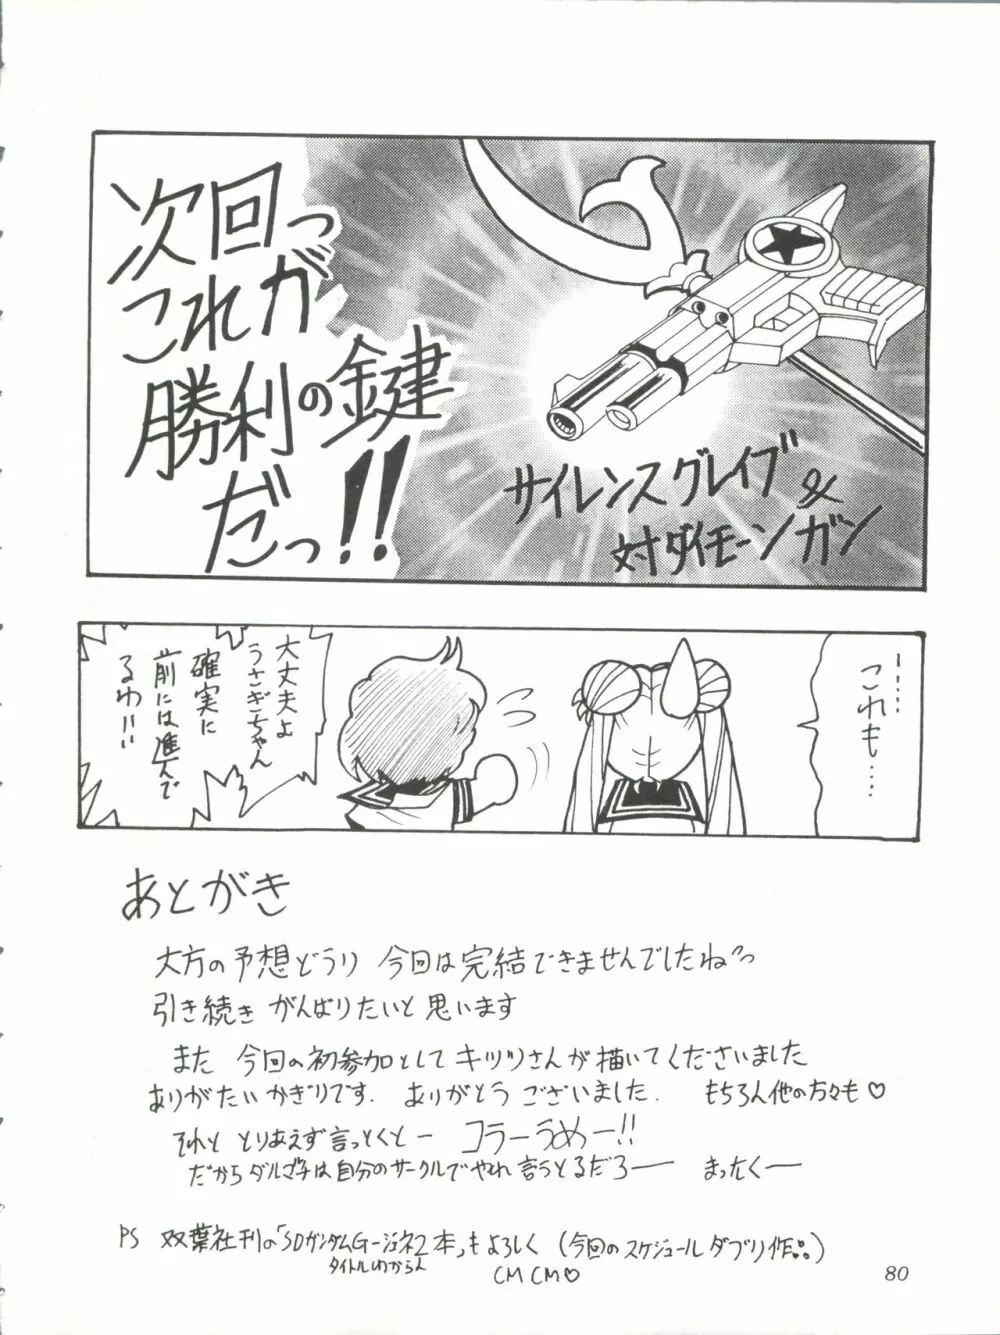 次回っ
これが
勝利の鍵
だっ!!
サイレンスグレイブ&
対ダイモーンガン
……
これも…
大丈夫よ
うさぎちゃん
確実に
前には進んで
るわ!!!
あとがき
大方の予想どうり 今回は完結できませんでしたねっ
引き続き がんばりたいと思います
また 今回の初参加として キツツさんが描いてくださいました
ありがたいかぎりです. ありがとうございました. もちろん他の方々も♡
それと とりあえず言っとくとー コラーうめー!!
だからダルマ子は自分のサークルでやれ言うとるだろー まったくー
PS 双葉社刊の「SDガンダムG-ジェネ2本」もよろしく (今回のスケジュール ダブリ作)
タイトルわからん
CM CM♡
80